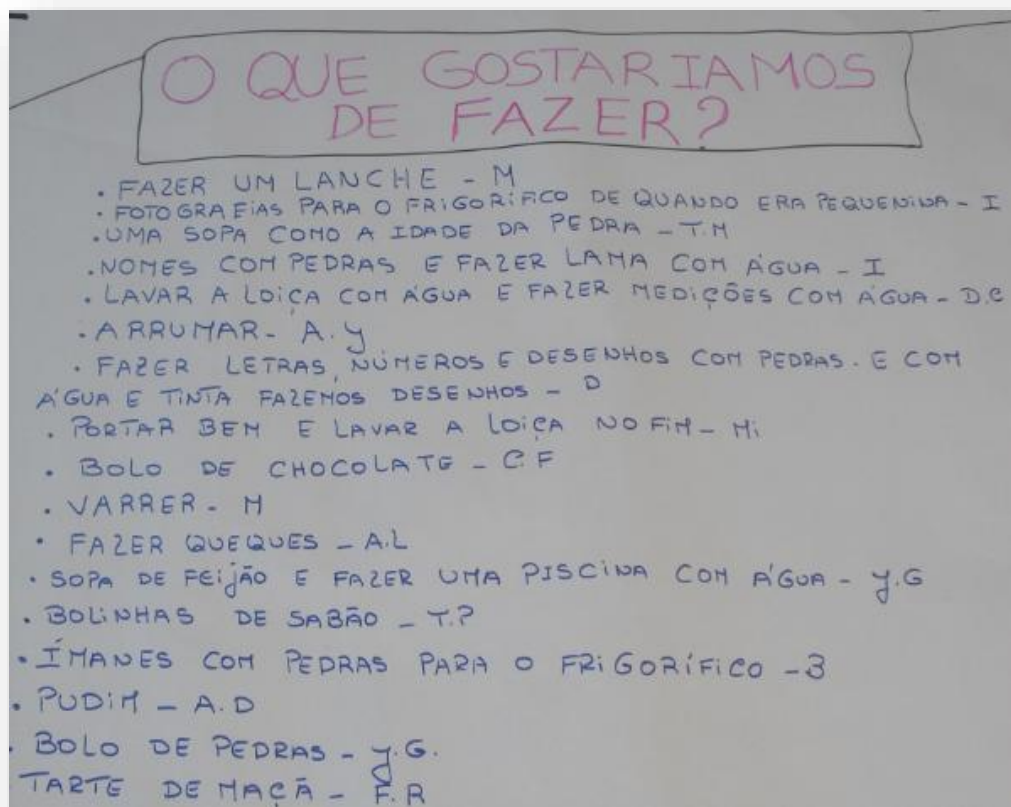 O QUE GOSTARIAMOS
DE FAZER?
. FAZER UM LANCHE - M
. FOTOGRAFIAS PARA O FRIGORÍFICO DE QUANDO ERA PEQUENINA - I
. UMA SOPA COMO A IDADE DA PEDRA - T.M
. NOMES COM PEDRAS E FAZER LAMA COM ÁGUA - I
. LAVAR A LOIÇA COM ÁGUA E FAZER MEDIÇÕES COM ÁGUA - D.C
. ARRUMAR - A.Y
. FAZER LETRAS, NÚMEROS E DESENHOS COM PEDRAS. E COM
ÁGUA E TINTA FAZEMOS DESENHOS - D
. PORTAR BEM E LAVAR A LOIÇA NO FIM - Mi
. BOLO DE CHOCOLATE - C.F
. VARRER - M
. FAZER QUEQUES - A.L
. SOPA DE FEIJÃO E FAZER UMA PISCINA COM ÁGUA - J.G
. BOLINHAS DE SABÃO - T.P
. ÍMANES COM PEDRAS PARA O FRIGORÍFICO - B
. PUDIM - A.D
. BOLO DE PEDRAS - J.G.
TARTE DE MAÇÃ - F.R